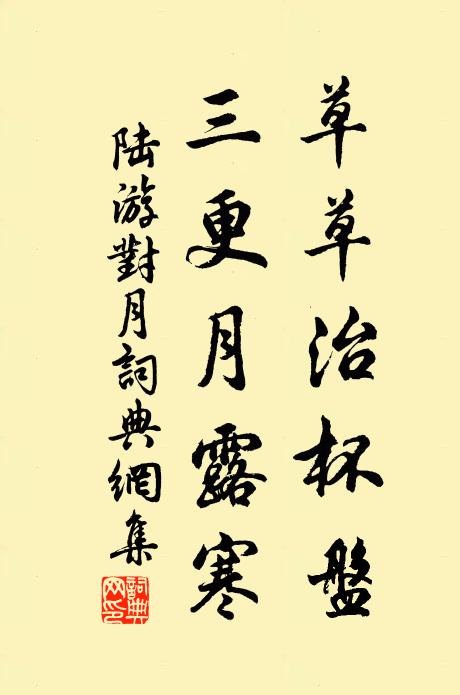 草草治杯盤
三更月露寒
陆游對月詞典網集
詞典网印